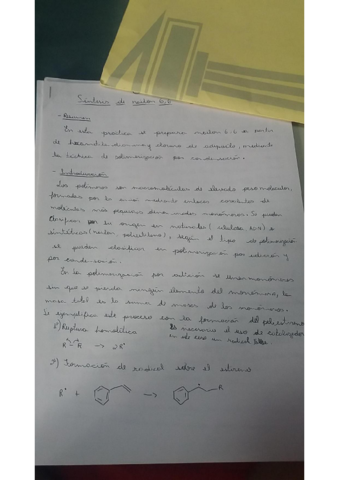 Síntesis de nailon 6,6
- Resumen
En esta práctica se prepara nailon 6,6 a partir
de hexametilendiamina y cloruro de adipoilo, mediante
la técnica de polimerización por condensación.
- Introducción
Los polímeros son macromoléculas de elevado peso molecular,
formadas por la unión mediante enlaces covalentes de
moléculas más pequeñas denominadas monómeros. Se pueden
clasificar por su origen en naturales (celulosa, ) o
sintéticos (nailon, polietileno), según el tipo de polimerización
se pueden clasificar en polimerización por adición y
por condensación.
En la polimerización por adición se unen monómeros
sin que se pierda ningún elemento del monómero, la
masa total es la suma de masas de los monómeros.
Se ejemplifica este proceso con la formación del poliestireno
1º) Ruptura homolítica
Es necesario el uso de catalizador
en este caso un radical libre
R - R → 2R•
2º) Formación de radical sobre el estireno
R• + → R